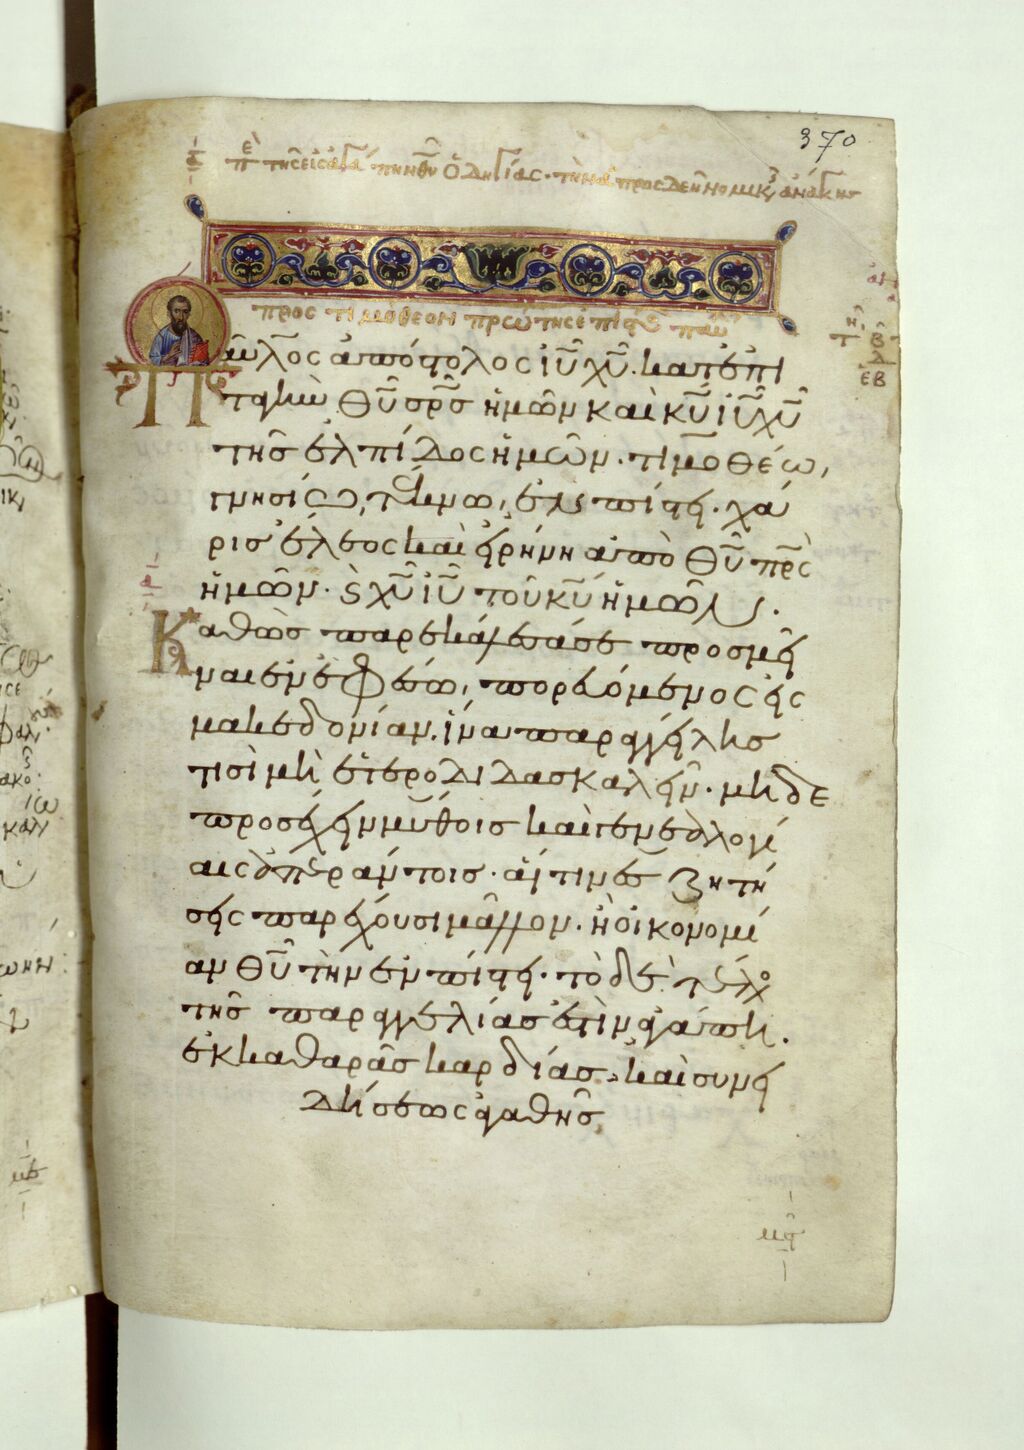 370
προς τιμοθεον πρώτης επις παυ
Παῦλος ἀπόστολος ἰῦ χῦ. κατ ἐπι
ταγὴν θῦ σρς ἡμῶν καὶ κῦ ἰῦ χῦ
τῆς ἐλπίδος ἡμῶν. τιμοθέω,
γνησίω, τέκνω, ἐν πίστει. χά
ρις ἔλεος καὶ εἰρήνη ἀπὸ θῦ πρς
ἡμῶν. ϗ χῦ ἰῦ τοῦ κῦ ἡμῶν.
Καθὼς παρεκάλεσά σε προσμεῖ
ναι ἐν ἐφέσω, πορευόμενος εἰς
μακεδονίαν. ἵνα παραγγείλης
τισὶ μὴ ἑτεροδιδασκαλεῖν. μηδὲ
προσέχειν μύθοις καὶ γενεαλογί
αις ἀπεράντοις. αἵτινες ζητή
σεις παρέχουσι μᾶλλον. ἢ οἰκονομί
αν θῦ τὴν ἐν πίστει. τὸ δὲ τέλος
τῆς παραγγελίας ἐστὶν ἀγάπη.
ἐκ καθαρᾶς καρδίας. καὶ συνει
δήσεως ἀγαθῆς,